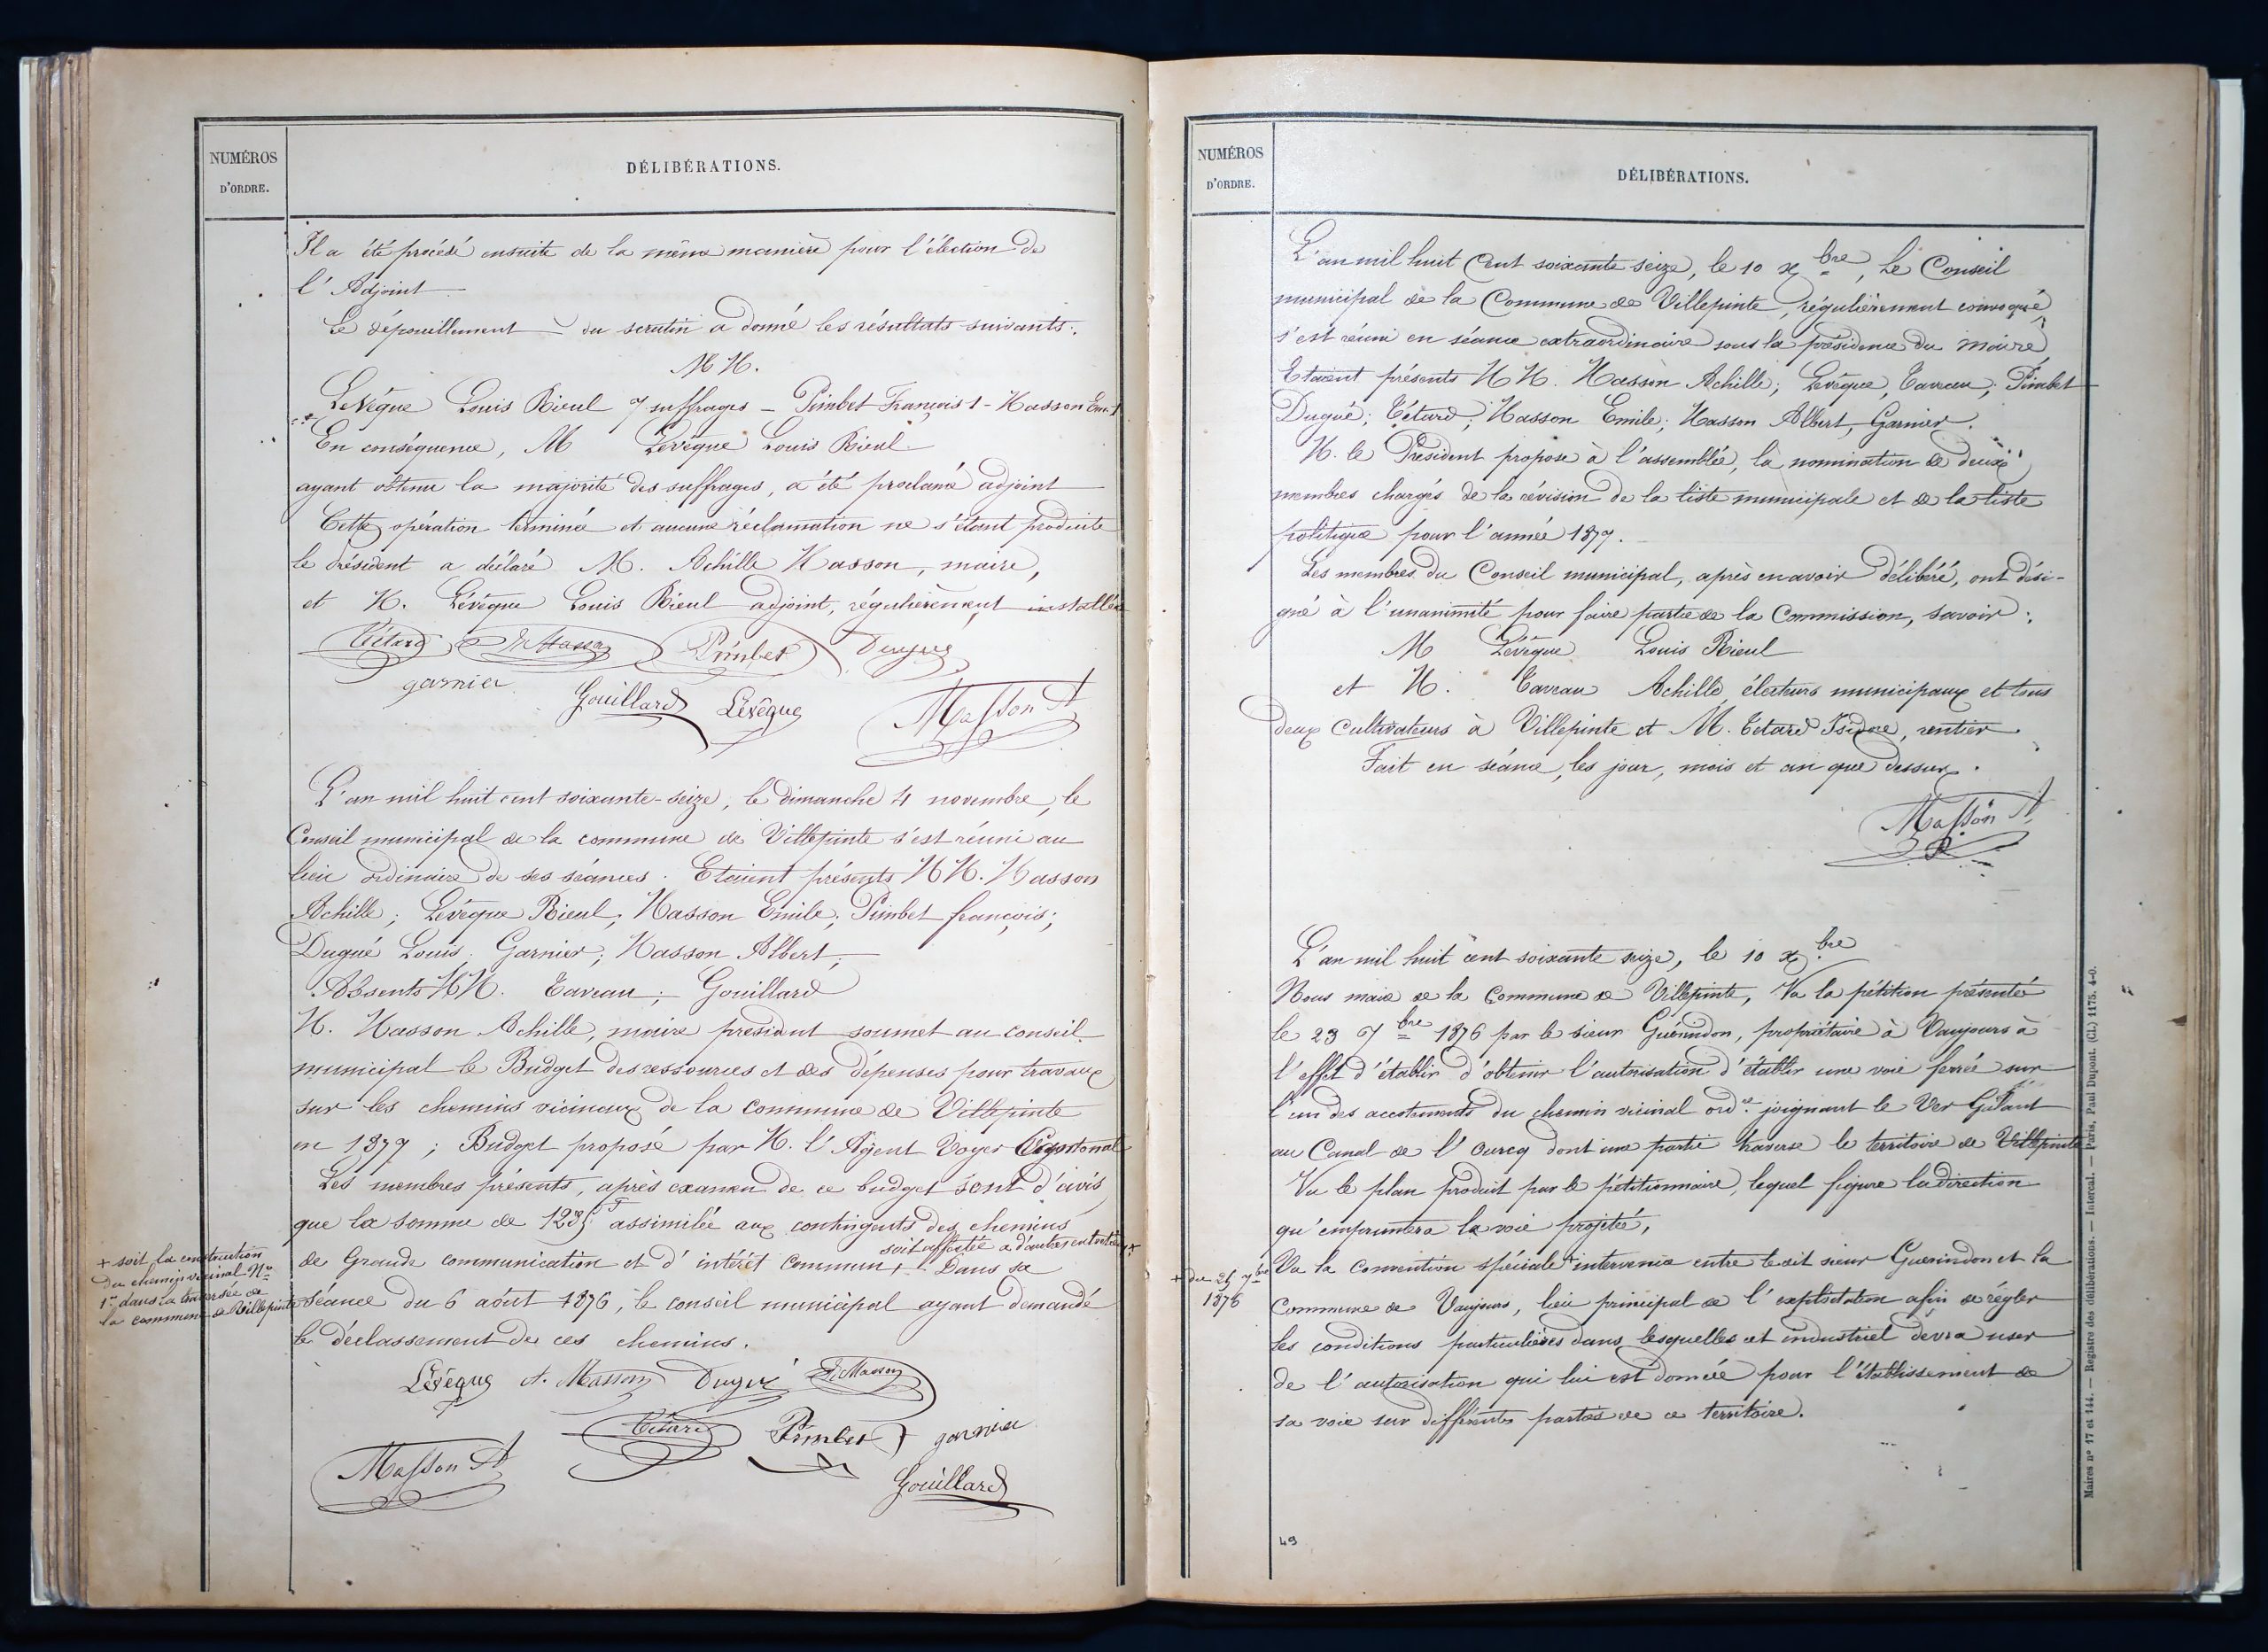 NUMÉROS
D'ORDRE.
DÉLIBÉRATIONS.
Il a été procédé ensuite de la même manière pour l'élection de
l'Adjoint
Le dépouillement du scrutin a donné les résultats suivants:
MM.
Levêque Louis Rieul 7 suffrages - Pimbet François 1 - Masson Em. 1
En conséquence, M Levêque Louis Rieul
ayant obtenu la majorité des suffrages, a été proclamé adjoint
Cette opération terminée et aucune réclamation ne s'étant produite
le président a déclaré M. Achille Masson, maire,
et M. Lévêque Louis Rieul adjoint, régulièrement installés
Tétard E. Masson Pimbet Dugué
garnier Gouillard Levêque Masson A
L'an mil huit cent soixante-seize, le dimanche 4 novembre, le
Conseil municipal de la commune de Villepinte s'est réuni au
lieu ordinaire de ses séances. Etaient présents MM. Masson
Achille; Levêque Rieul; Masson Emile; Pimbet françois;
Dugué Louis; Garnier; Masson Albert;
Absents MM. Taveau; Gouillard
M. Masson Achille, maire président soumet au conseil
municipal le Budget des ressources et des dépenses pour travaux
sur les chemins vicinaux de la commune de Villepinte
en 1877; Budget proposé par M. l'Agent Voyer Cantonal
Les membres présents, après examen de ce budget sont d'avis
que la somme de assimilée aux contingents des chemins
soit affectée à d'autres entretiens +
de Grande communication et d'intérêt Commun, Dans sa
séance du 6 août 1876, le conseil municipal ayant demandé
le déclassement de ces chemins.
+ soit la construction
du chemin vicinal No
1er dans la traversée de
la commune de Villepinte
Levêque A. Masson Dugué E. Masson
Tétard Pimbet garnier
Masson A Gouillard
NUMÉROS
D'ORDRE.
DÉLIBÉRATIONS.
L'an mil huit Cent soixante seize, le 10 Xbre, Le Conseil
municipal de la Commune de Villepinte, régulièrement convoqué
s'est réuni en séance extraordinaire sous la présidence du maire
Etaient présents MM. Masson Achille; Levêque, Taveau; Pimbet
Dugué; Tétard; Masson Emile; Masson Albert, Garnier.
M. le Président propose à l'assemblée, la nomination de deux
membres chargés de la révision de la liste municipale et de la liste
politique pour l'année 1877.
Les membres du Conseil municipal, après en avoir délibéré, ont dési-
gné à l'unanimité pour faire partie de la Commission, savoir:
M Levêque Louis Rieul
et M. Taveau Achille électeurs municipaux et tous
deux Cultivateurs à Villepinte et M. Tétard Isidore, rentier
Fait en séance, les jour, mois et an que dessus.
Masson A
L'an mil huit cent soixante seize, le 10 Xbre
Nous maire de la Commune de Villepinte, Vu la pétition présentée
le 23 7bre 1876 par le sieur Guérindon, propriétaire à Vaujours à
l'effet d'établir d'obtenir l'autorisation d'établir une voie ferrée sur
l'un des accotements du chemin vicinal ordre joignant le Ver Galant
au Canal de l'Ourcq dont une partie traverse le territoire de Villepinte
Vu le plan produit par le pétitionnaire, lequel figure la direction
qu'empruntera la voie projetée,
Vu la Convention spéciale + intervenue entre le dit sieur Guerindon et la
+ du 25 7bre
1876
Commune de Vaujours, lieu principal de l'exploitation afin de régler
les conditions particulières dans lesquelles cet industriel devra user
de l'autorisation qui lui est donnée pour l'établissement de
sa voie sur différentes parties de ce territoire.
49
Maires nos 17 et 144. — Registre des délibérations. — Intercal. — Paris, Paul Dupont. (Cl.) 1175. 4-0.